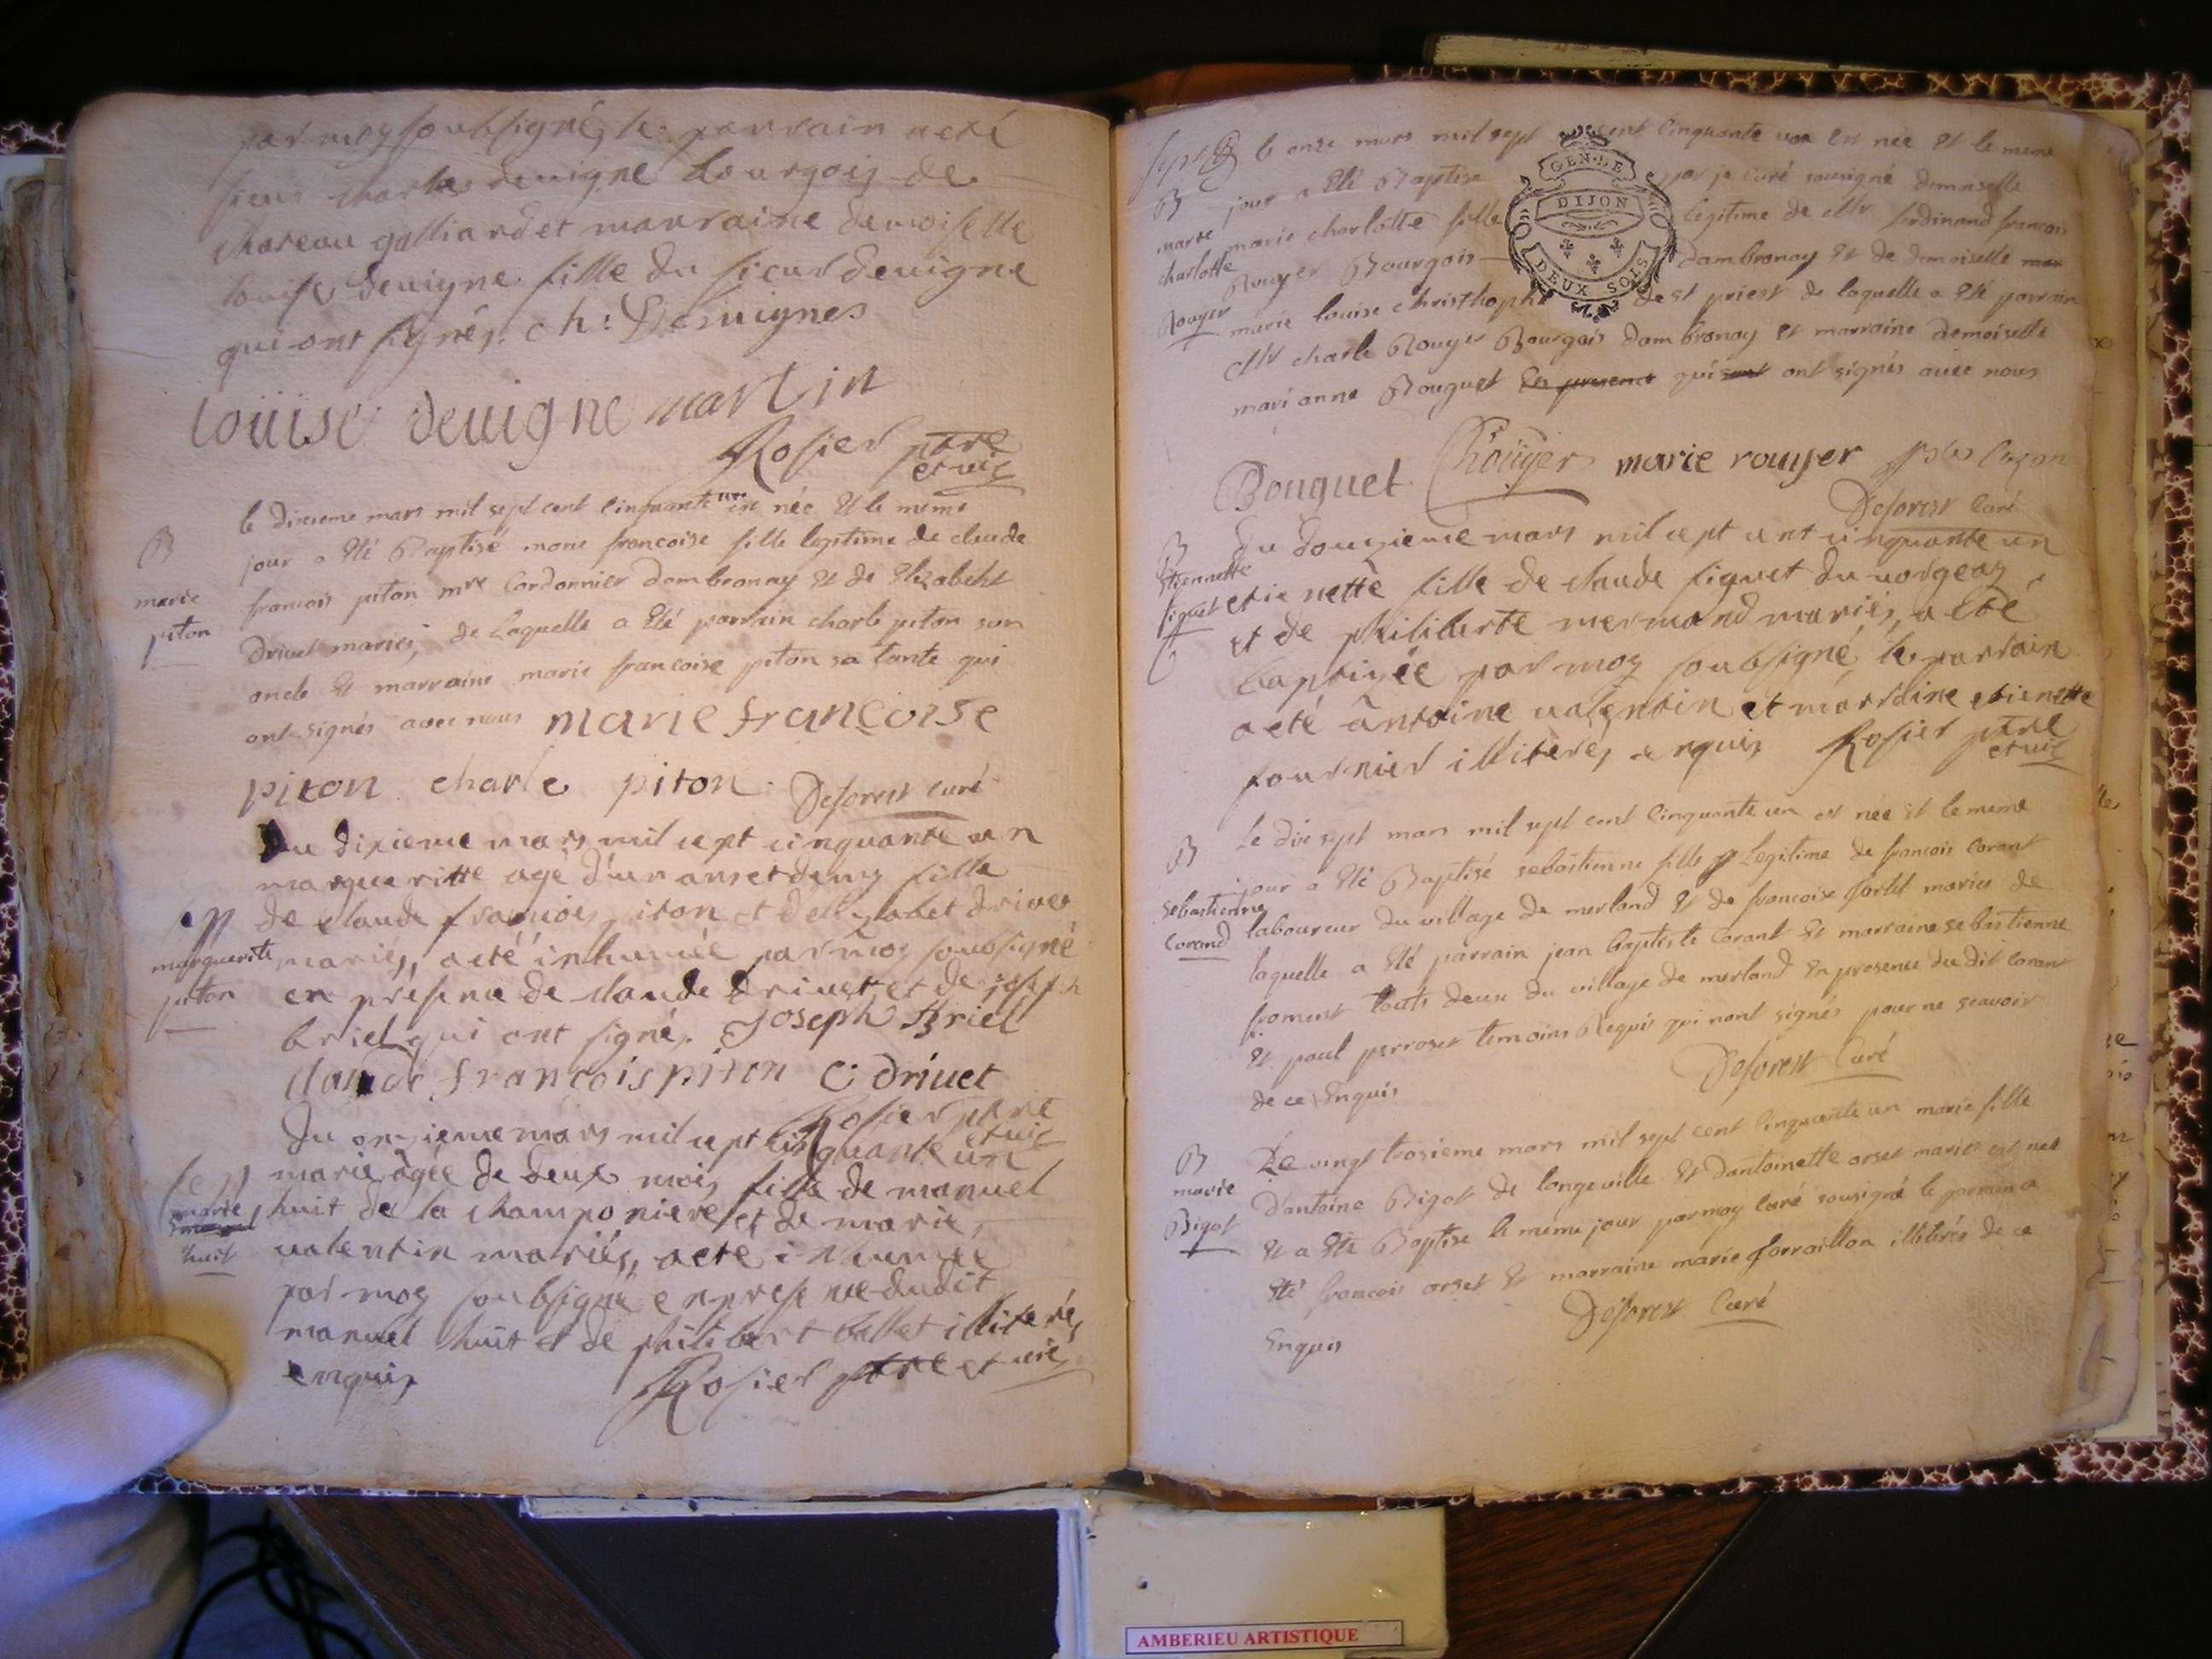 par moy soubsigné, le parrain aeté
sieur charles devigne bourgois de
chateau galliard et marraine demoiselle
louise devigne fille du sieur devigne
qui ont signés. ch: Desvignes
loüise devigne martin
Rosier ptre
et vic
le dixieme mars mil sept cent cinquante un est née et le meme
B
jour a eté Baptisé marie francoise fille legitime de claude
marie
francois piton mre Cordonnier dambronay et de Elizabeht
piton
Drivet mariés, de laquelle a eté parrain charle piton son
oncle et marraine marie francoise piton sa tante qui
ont signés avec nous marie françoise
piton charle piton Deforest curé
Du dixieme mars mil cept cinquante un
margueritte agé d'un anset demy fille
de claude françois piton et dellyzabet drivet
marguerite
mariés, aeté inhumée par moy soubsigné
piton
en présence de claude drivet et de joseph
briel qui ont signé, Joseph Briel
claude françois piton C: drivet
Rosier ptre
et vic
Du onzieme mars mil cept cinquante un
marie âgée de deux mois fille de manuel
marie
huit de la championiere et de marie
huit
valentin mariés, aeté inhumée
par moy soubsigné en presence dudit
manuel huit et de philibert ballet illiterés
enquis
Rosier ptre et vic
le onze mars mil sept cent cinquante un est née et le meme
B
jour a eté Baptisé par je curé sousigné demoiselle
marie
marie charlotte fille legitime de Mr ferdinand francois
charlotte
Rouyer Bourgois dambronay et de demoiselle mar
Rouyer
marie louise christhophe de st priest de laquelle a eté parrain
Mr charle Rouyer Bourgois dambronay et marraine demoiselle
marianne Bouguet en presence qui sont ont signés avec nous
Bouguet Choüyer marie rouyer
Deforest Curé
B
Du douzieme mars mil cept cent cinquante un
Etiennette
etienette fille de claude siguet du vorgeay
siguet
et de philiberte mermand mariés, a eté
baptizée par moy soubsigné, le parrain
aeté antoine valentin et marraine etienette
fournier illiterés enquis Rosier ptre
et vic
Le dix sept mars mil sept cent cinquante un est née et le meme
B
jour a eté Baptisé sebastienne fille legitime de francois Corant
sebastienne
laboureur du village de merland et de francoise fortel mariés de
Corand
laquelle a eté parrain jean baptiste Corant et marraine sebastienne
froment touts deux du village de merland en presence du dit Corant
et paul perroset temoins Requis qui nont signés pour ne scavoir
de ce Enquis
Deforest Curé
Le vingt troisieme mars mil sept cent cinquante un marie fille
B
marie
Dantoine Bigot de longeville et dantoinette orset mariés est née
Bigot
et a eté Baptise le meme jour par moy Curé sousigné le parrain a
eté francois orset et marraine marie forraillon illiterés de ce
Enquis
Deforest Curé
GEN·DE
DIJON
DEUX SOLS
AMBERIEU ARTISTIQUE